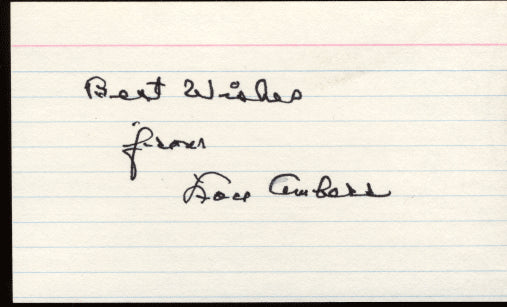 Best Wishes
from
Don Ambass